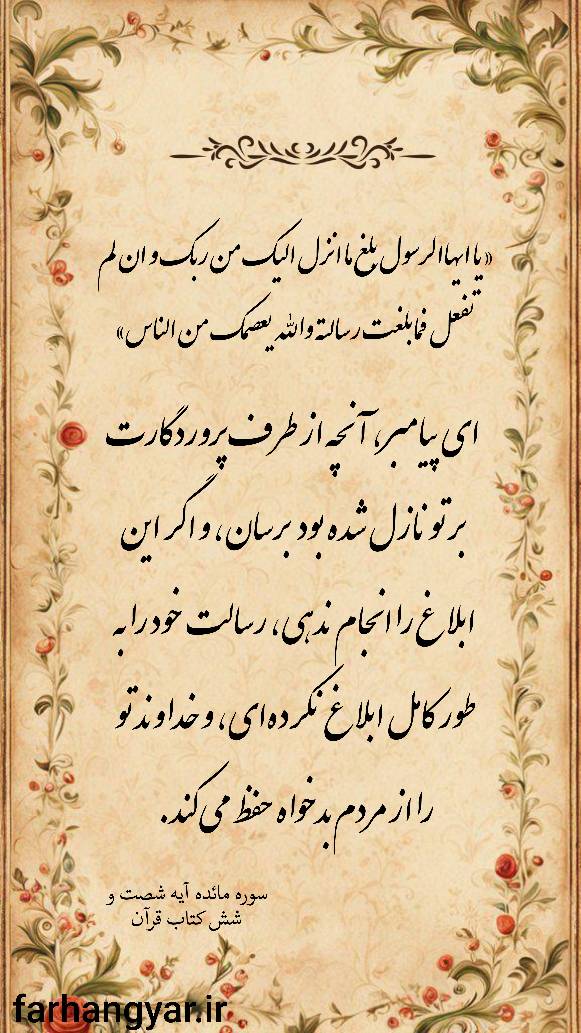 «یا ایها الرسول بلغ ما انزل الیک من ربک و ان لم
تفعل فما بلغت رسالته والله یعصمک من الناس»
ای پیامبر، آنچه از طرف پروردگارت
بر تو نازل شده بود برسان، و اگر این
ابلاغ را انجام ندهی، رسالت خود را به
طور کامل ابلاغ نکرده‌ای، و خداوند تو
را از مردم بدخواه حفظ می‌کند.
سوره مائده آیه شصت و
شش کتاب قرآن
farhangyar.ir